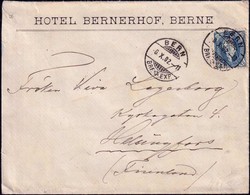 HOTEL BERNERHOF, BERNE
BERN
6.X.97.-11
BRF. EXP.
Fröken Viva Lagerborg
Helsingfors
(Finnland)